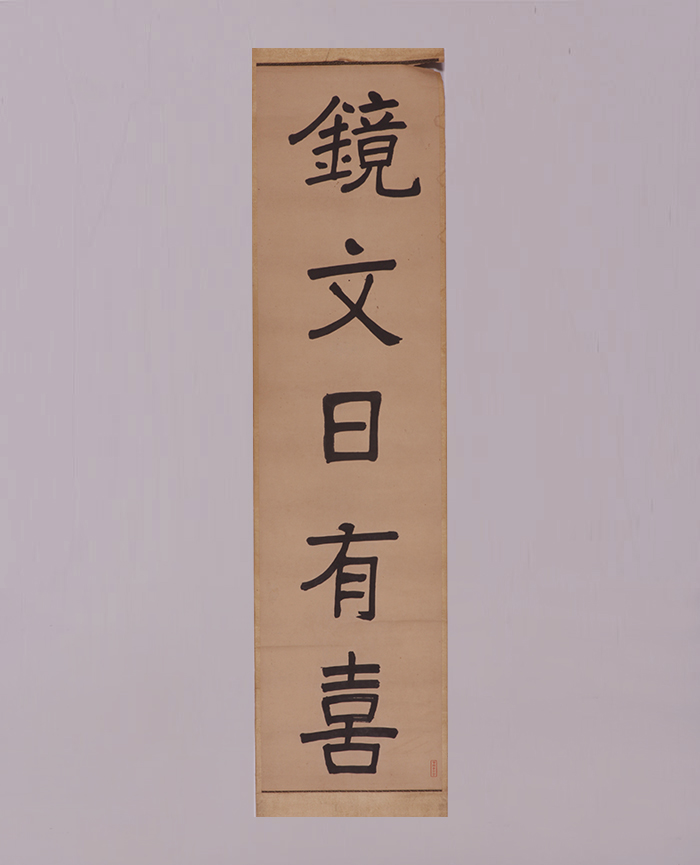 鏡文日有喜